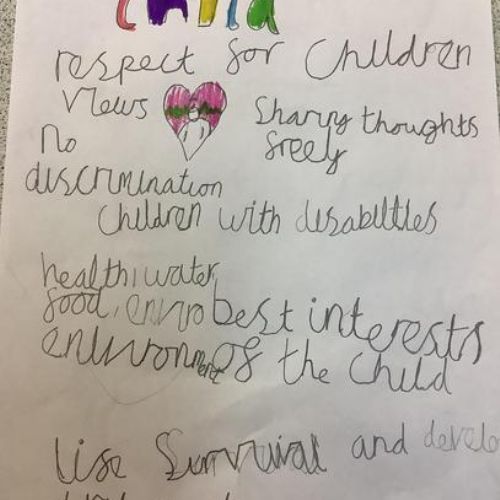 child
respect for Children
views
Sharing thoughts
freely
no
discrimination
Children with disabilities
health, water,
food, enviro
best interests
environment
of the Child
Life Survival and develo